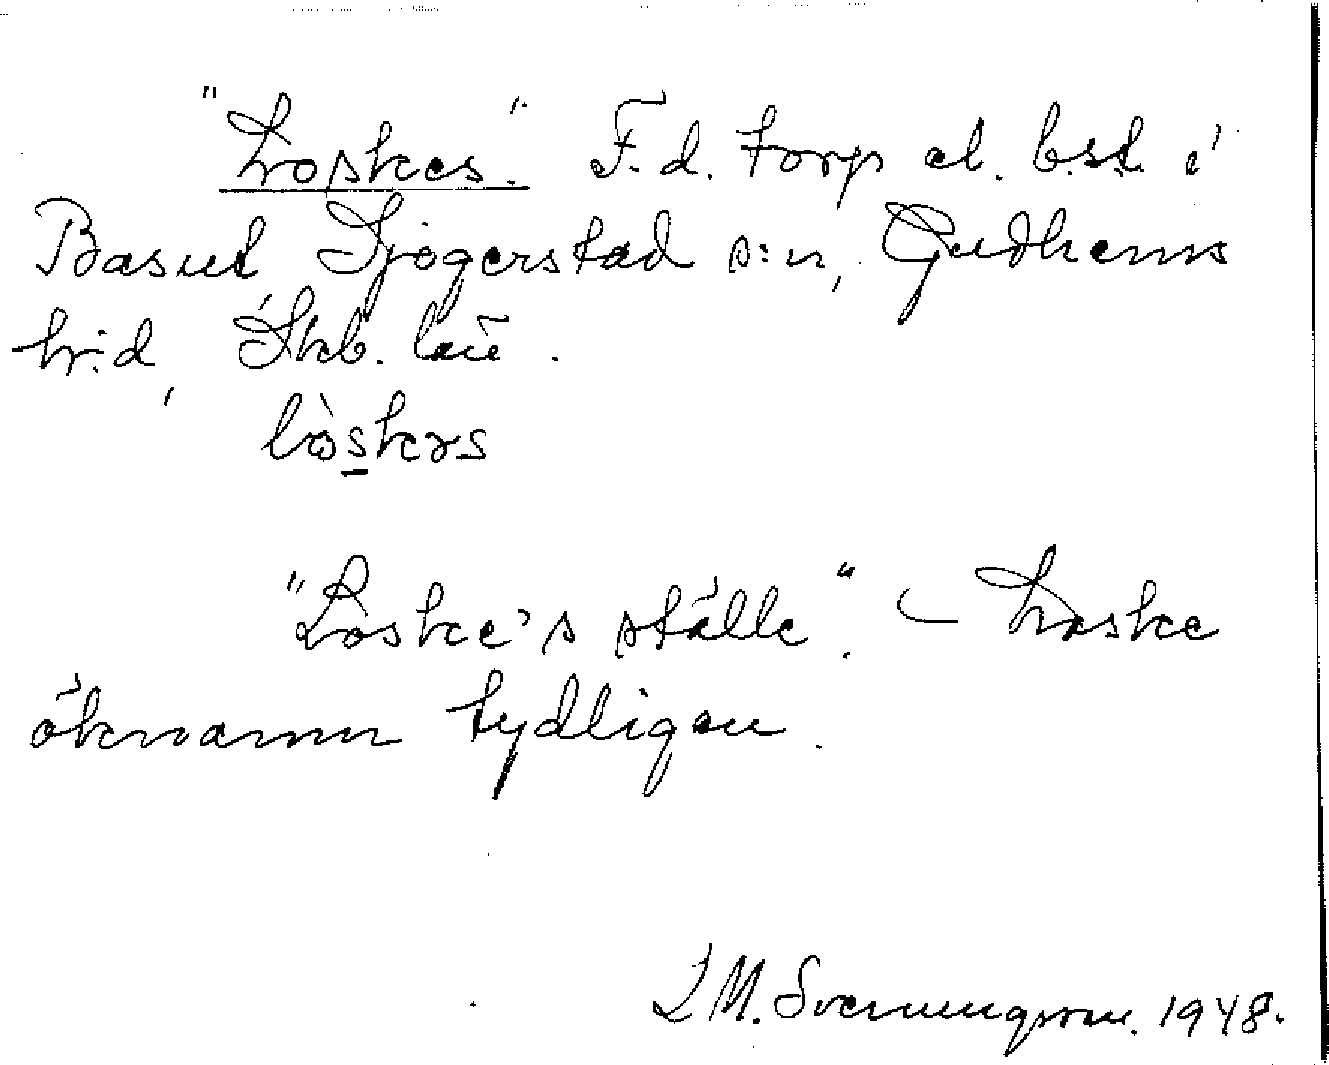 "Loskes". F.d. torp el. bst. i
Basud, Sjogerstad s:n, Gudhems
h:d, Skb. län.
lòskers
"Loske's ställe". – Loske
öknamn tydligen.
J M. Svenungsson. 1948.